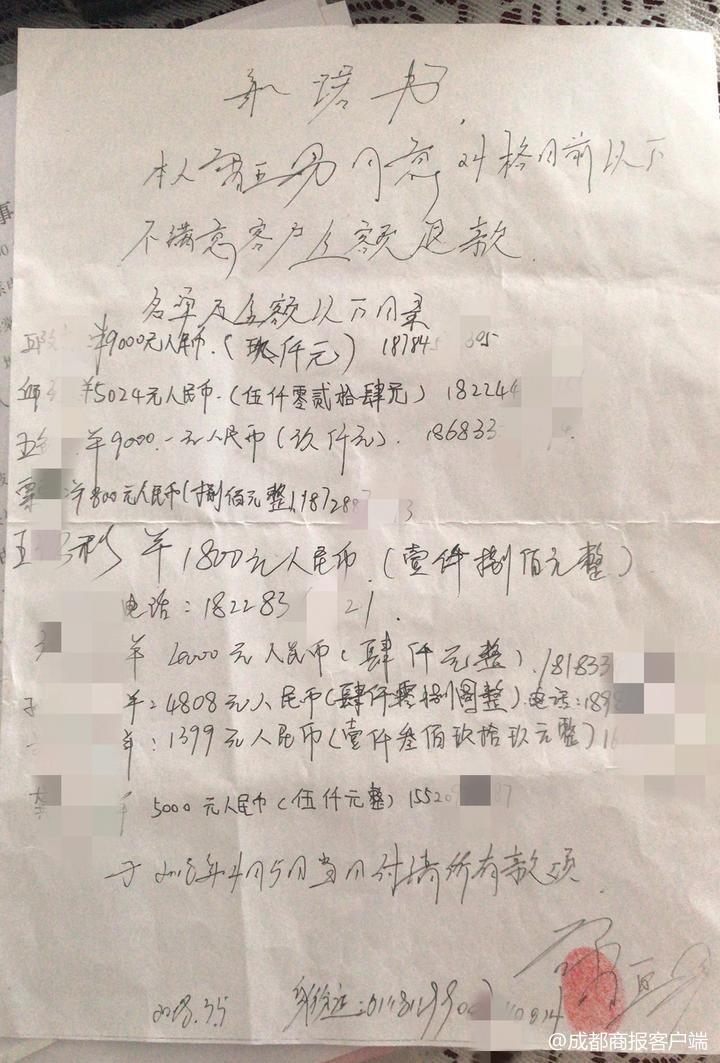 承诺书
本人 同意对 前以下
不满意客户全额退款
名单及金额以下目录
邱 ¥9000元人民币.(玖仟元) 18784 395
¥5024元人民币.(伍仟零贰拾肆元) 182244
¥9000.一元人民币(玖仟元). 186833
覃 ¥800元人民币(捌佰元整)1987288 3
王 彬 ¥1800元人民币.(壹仟捌佰元整)
电话:182283 21.
¥ 4000元人民币(肆仟元整).181833
¥:4808元人民币(肆仟零捌圆整).电话:1898
¥:1399元人民币(壹仟叁佰玖拾玖元整)
5000元人民币(伍仟元整)15520 87
于2018年4月5日当日付清所有款项.
2018.3.5 身份证:
@成都商报客户端